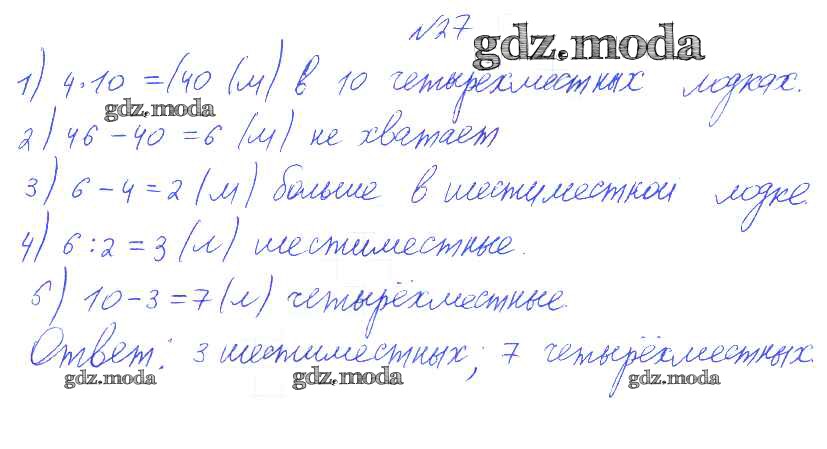 №27
gdz.moda
1) 4·10 =(40 (м) в 10 четырёхместных лодках.
gdz.moda
2) 46 – 40 = 6 (м) не хватает
3) 6 – 4 = 2 (м) больше в шестиместной лодке.
4) 6 : 2 = 3 (л) шестиместные.
5) 10 – 3 = 7 (л) четырёхместные.
Ответ: 3 шестиместных; 7 четырёхместных.
gdz.moda gdz.moda gdz.moda